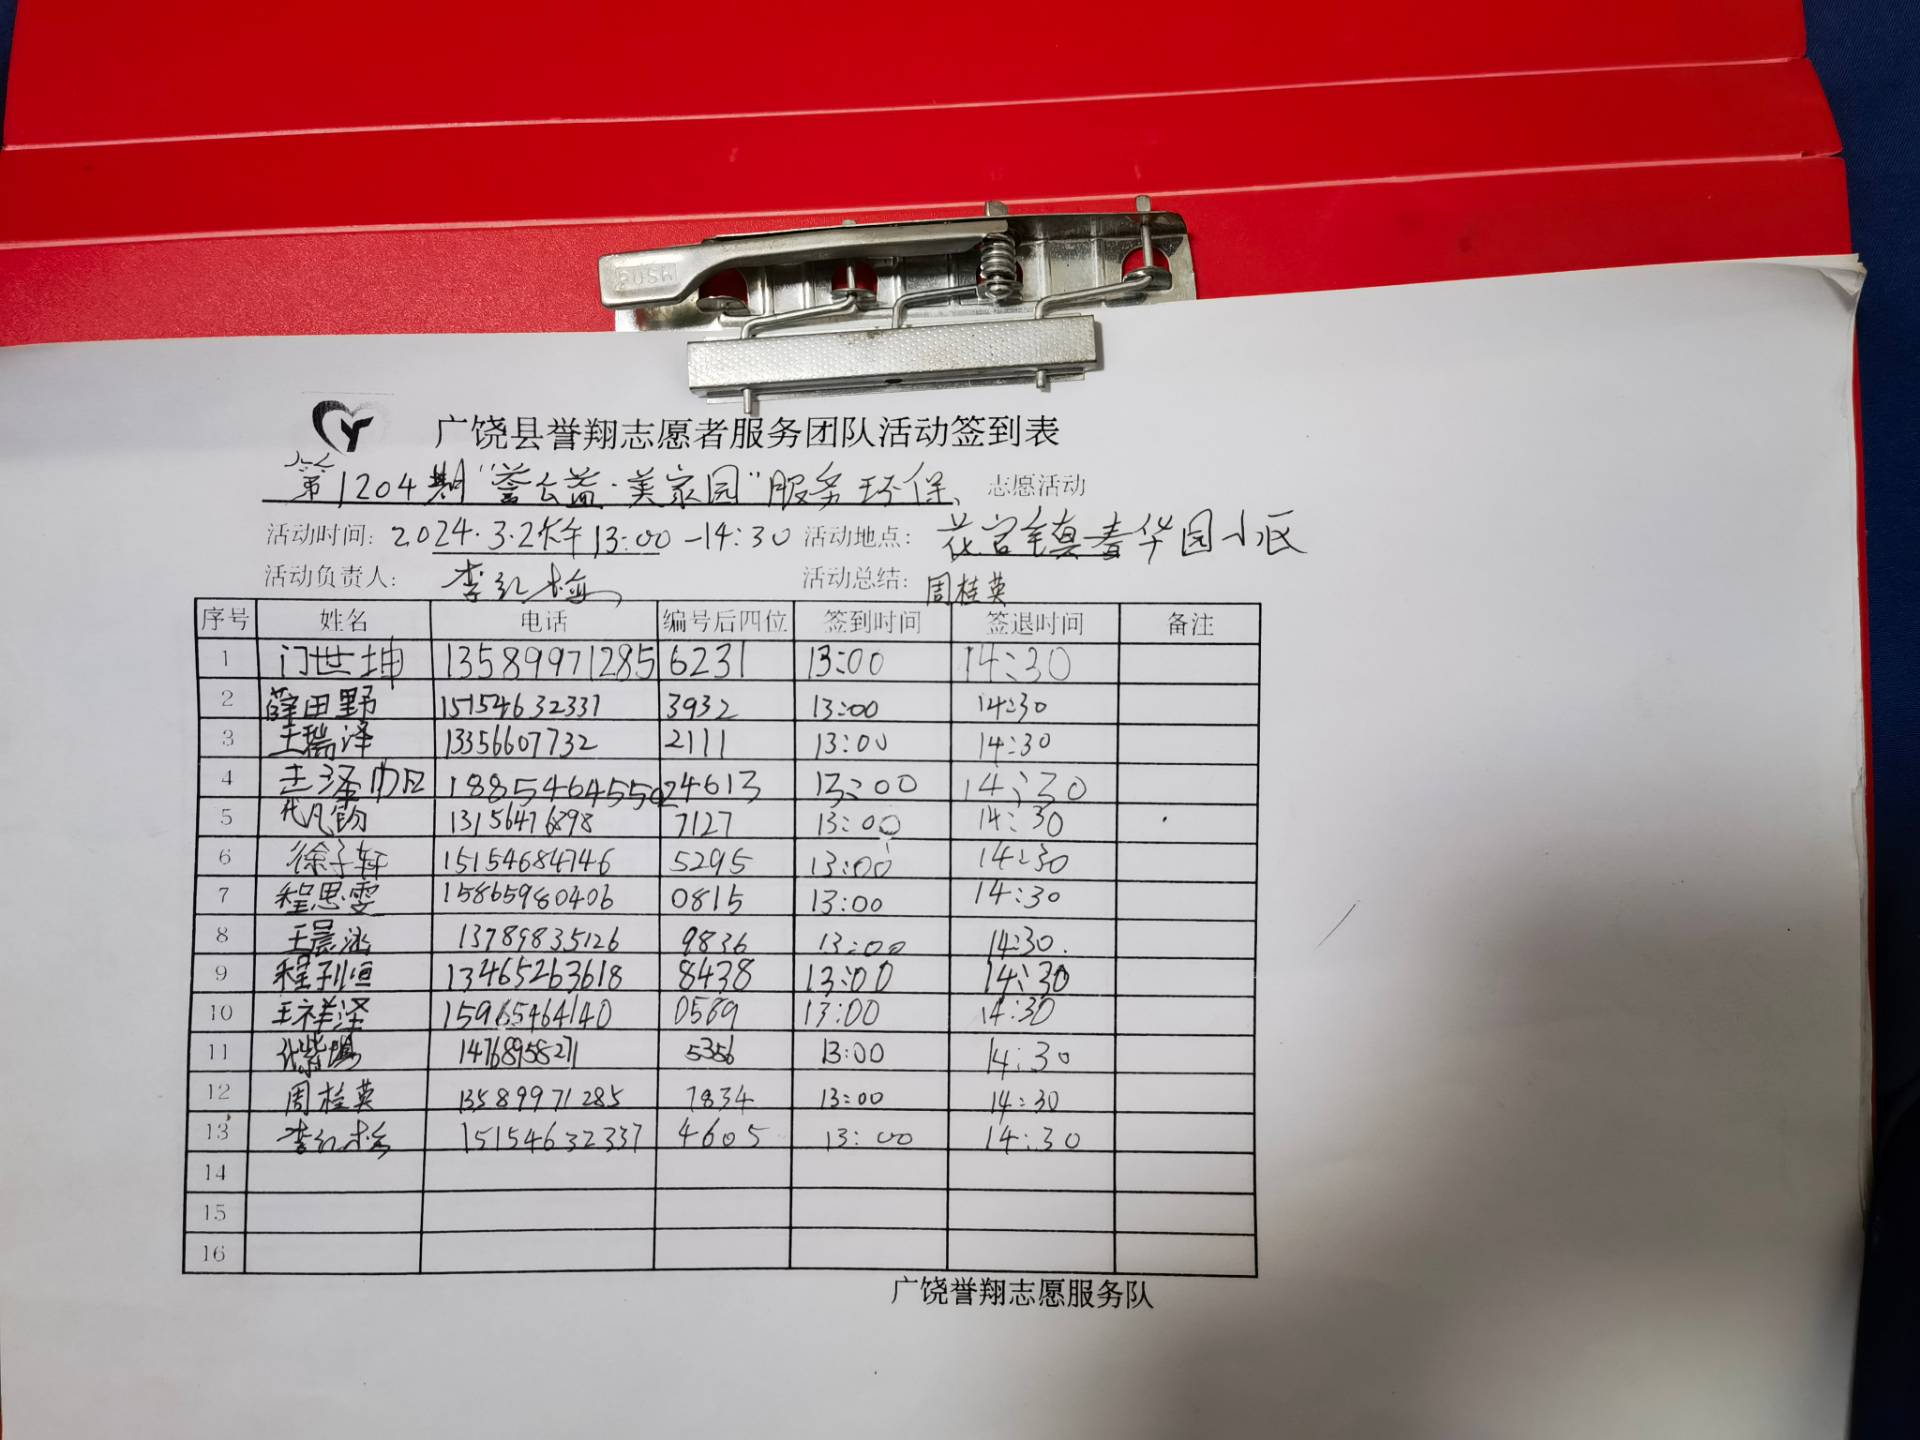 PUSH
广饶县誉翔志愿者服务团队活动签到表
第1204期"誉公益·美家园"服务环保、 志愿活动
活动时间: 2024.3.2下午13:00-14:30 活动地点: 花官镇春华园小区
活动负责人: 李红 活动总结: 周桂英
序号 姓名 电话 编号后四位 签到时间 签退时间 备注
1 门世坤 13589971285 6231 13:00 14:30
2 薛田野 15154632337 3932 13:00 14:30
3 王瑞泽 13356607732 2111 13:00 14:30
4 泽 18854645502 4613 13:00 14:30
5 代凡钧 13156476898 7127 13:00 14:30
6 徐子轩 15154684746 5295 13:00 14:30
7 程思雯 15865980406 0815 13:00 14:30
8 王晨 13789835126 9836 13:00 14:30
9 程子恒 13465263618 8438 13:00 14:30
10 王祥泽 15965464140 0589 13:00 14:30
11 张紫 14768958271 5356 13:00 14:30
12 周桂英 13589971285 7834 13:00 14:30
13 李红 15154632337 4605 13:00 14:30
14
15
16
广饶誉翔志愿服务队